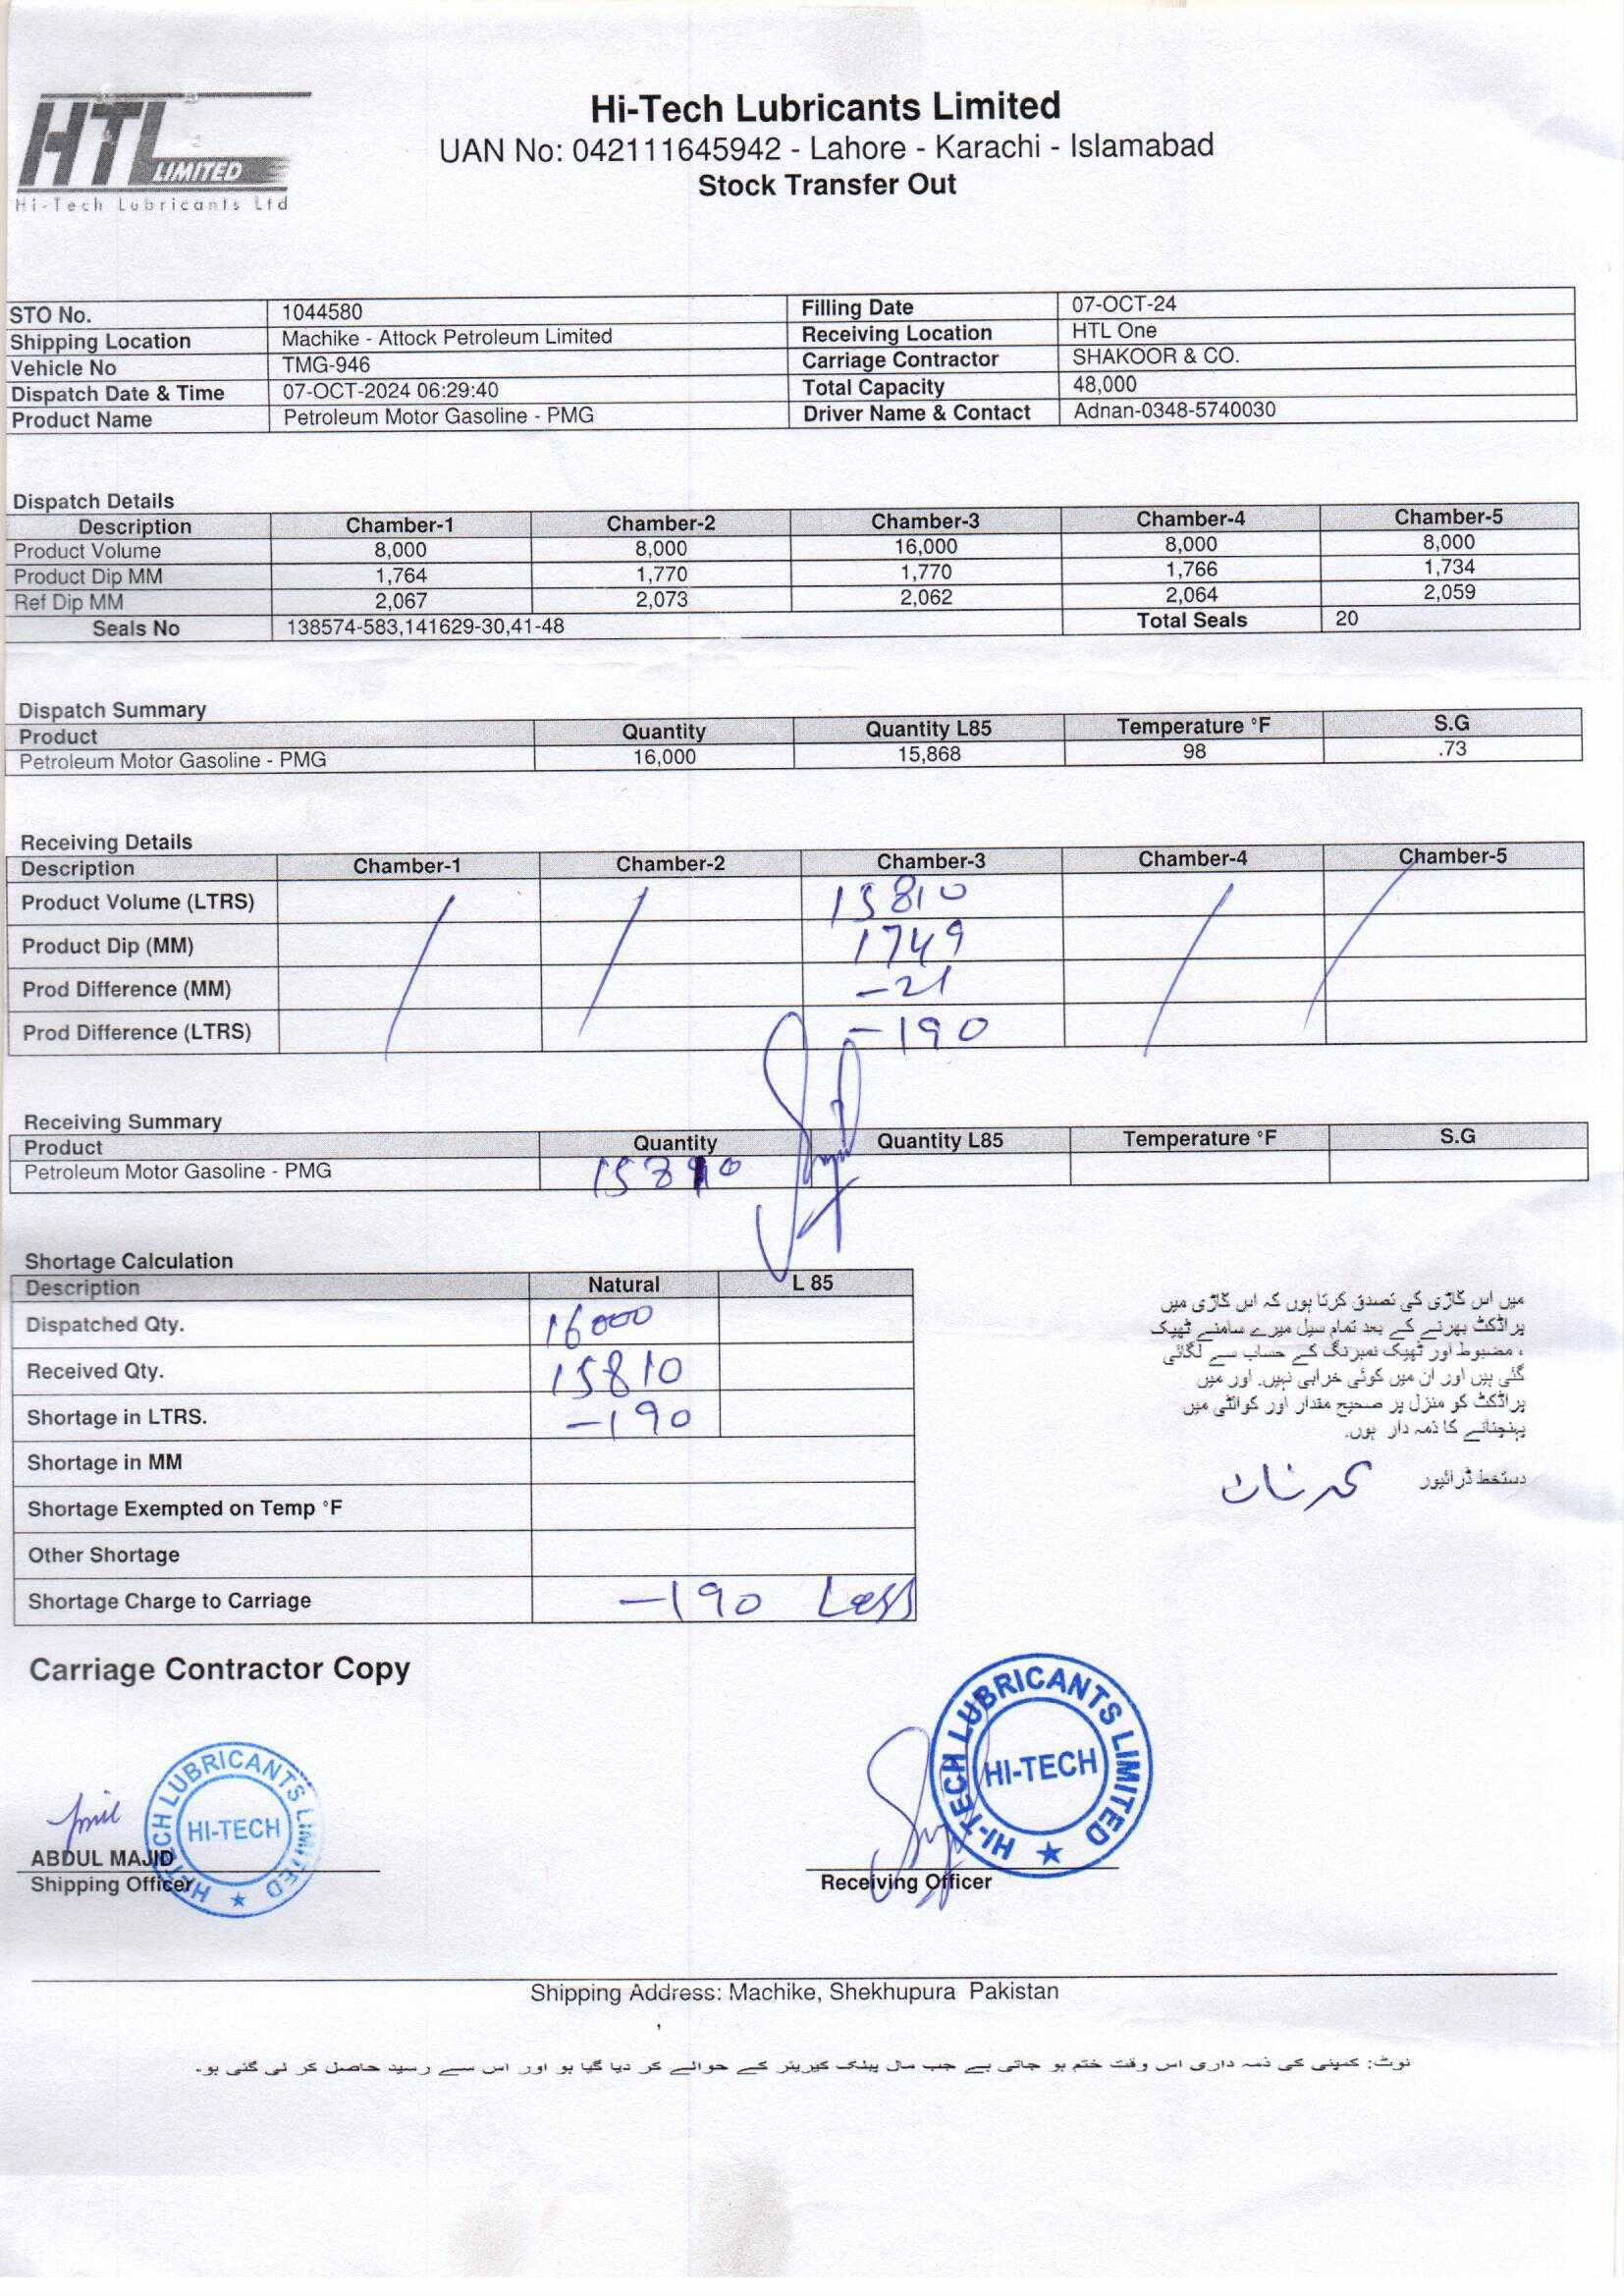 HTL
LIMITED
Hi-Tech Lubricants Ltd
Hi-Tech Lubricants Limited
UAN No: 042111645942 - Lahore - Karachi - Islamabad
Stock Transfer Out
STO No. 1044580 Filling Date 07-OCT-24
Shipping Location Machike - Attock Petroleum Limited Receiving Location HTL One
Vehicle No TMG-946 Carriage Contractor SHAKOOR & CO.
Dispatch Date & Time 07-OCT-2024 06:29:40 Total Capacity 48,000
Product Name Petroleum Motor Gasoline - PMG Driver Name & Contact Adnan-0348-5740030
Dispatch Details
Description Chamber-1 Chamber-2 Chamber-3 Chamber-4 Chamber-5
Product Volume 8,000 8,000 16,000 8,000 8,000
Product Dip MM 1,764 1,770 1,770 1,766 1,734
Ref Dip MM 2,067 2,073 2,062 2,064 2,059
Seals No 138574-583,141629-30,41-48 Total Seals 20
Dispatch Summary
Product Quantity Quantity L85 Temperature °F S.G
Petroleum Motor Gasoline - PMG 16,000 15,868 98 .73
Receiving Details
Description Chamber-1 Chamber-2 Chamber-3 Chamber-4 Chamber-5
Product Volume (LTRS) 15810
Product Dip (MM) 1749
Prod Difference (MM) -21
Prod Difference (LTRS) -190
Receiving Summary
Product Quantity Quantity L85 Temperature °F S.G
Petroleum Motor Gasoline - PMG 15810
Shortage Calculation
Description Natural L 85
Dispatched Qty. 16000
Received Qty. 15810
Shortage in LTRS. -190
Shortage in MM
Shortage Exempted on Temp °F
Other Shortage
Shortage Charge to Carriage -190 Less
میں اس گاڑی کی تصدق کرتا ہوں کہ اس گاڑی میں
پراڈکٹ بھرنے کے بعد تمام سیل میرے سامنے ٹھیک
، مضبوط اور ٹھیک نمبرنگ کے حساب سے لگائی
گئی ہیں اور ان میں کوئی خرابی نہیں. اور میں
پراڈکٹ کو منزل پر صحیح مقدار اور کوالٹی میں
پہنچنانے کا ذمہ دار ہوں.
دستخط ڈرائیور
Carriage Contractor Copy
HI-TECH LUBRICANTS LIMITED
HI-TECH
ABDUL MAJID
Shipping Officer
HI-TECH LUBRICANTS LIMITED
HI-TECH
Receiving Officer
Shipping Address: Machike, Shekhupura Pakistan
نوٹ: کمپنی کی ذمہ داری اس وقت ختم ہو جاتی ہے جب مال پبلک کیریئر کے حوالے کر دیا گیا ہو اور اس سے رسید حاصل کر لی گئی ہو۔